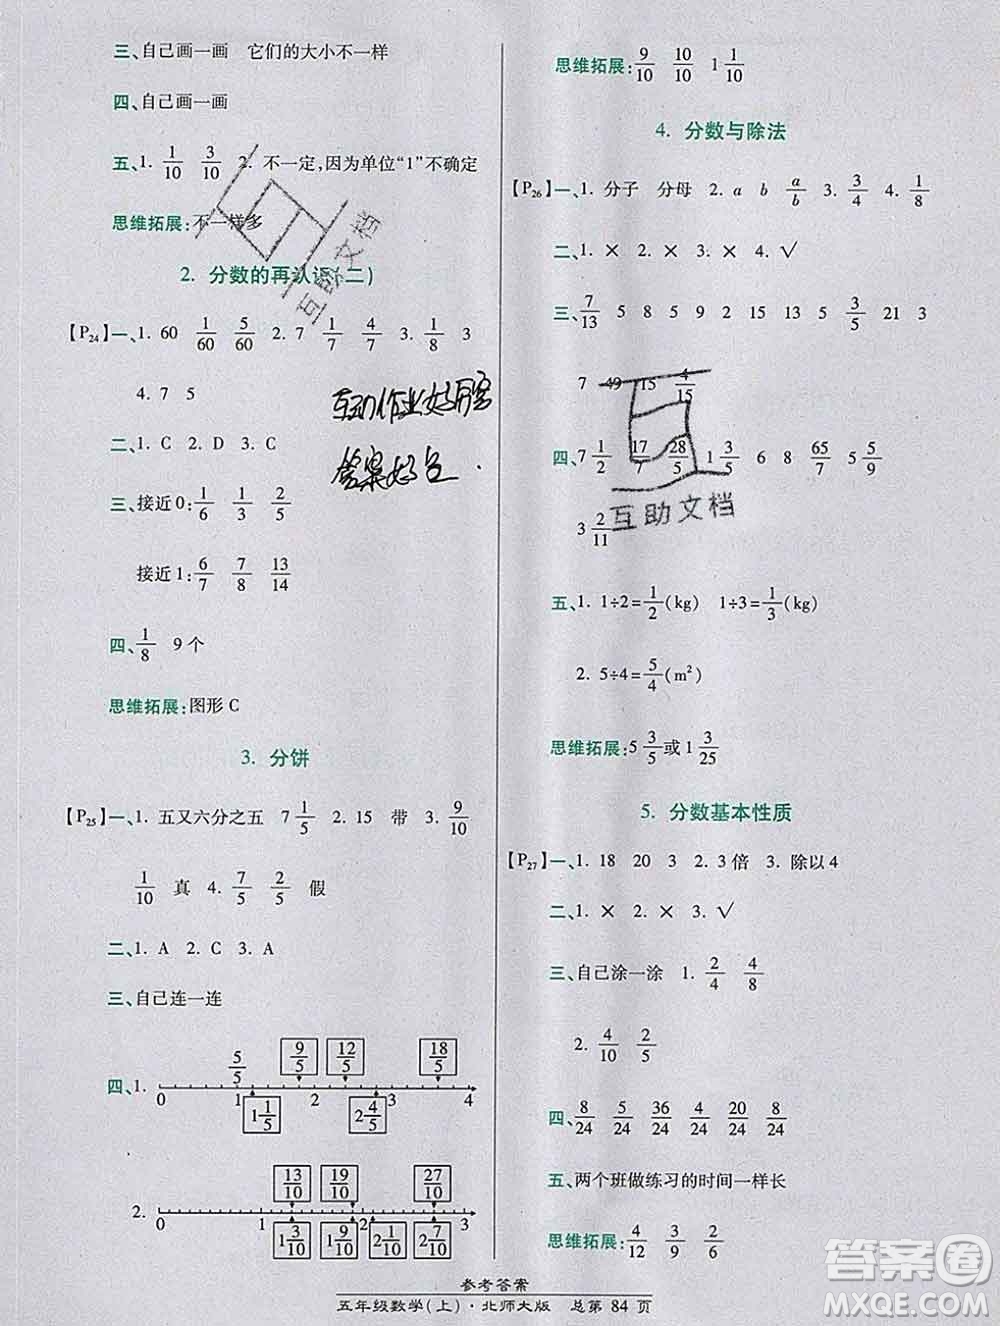 三、自己画一画 它们的大小不一样
四、自己画一画
五、1. 1/10 3/10 2. 不一定,因为单位“1”不确定
思维拓展:不一样多
2. 分数的再认识(二)
【P24】一、1. 60 1/60 5/60 2. 7 1/7 4/7 3. 1/8 3
4. 7 5
二、1. C 2. D 3. C
三、接近0: 1/6 1/3 2/5
接近1: 6/7 7/8 13/14
四、1/8 9个
思维拓展:图形C
3. 分饼
【P25】一、1. 五又六分之五 7 1/5 2. 15 带 3. 9/10
1/10 真 4. 7/5 2/5 假
二、1. A 2. C 3. A
三、自己连一连
四、1. 5/5 9/5 12/5 18/5
0 1 2 3 4
1 1/5 2 4/5
13/10 19/10 27/10
2. 0 1 2 3
1 3/10 1 9/10 2 1/10 2 7/10
思维拓展: 9/10 10/10 1 1/10
4. 分数与除法
【P26】一、1. 分子 分母 2. a b a/b 3. 3/4 4. 1/8
二、1. × 2. × 3. × 4. √
三、7/13 5 8 5 9 2 15 13 5 3/5 21 3
7 49 15 4/15
四、7 1/2 17/7 28/5 1 3/5 6 8 65/7 5 5/9
3 2/11
五、1. 1÷2=1/2(kg) 1÷3=1/3(kg)
2. 5÷4=5/4(m²)
思维拓展: 5 3/5或1 3/25
5. 分数基本性质
【P27】一、1. 18 20 3 2. 3倍 3. 除以4
二、1. × 2. × 3. √
三、自己涂一涂 1. 2/4 4/8
2. 4/10 2/5
四、8/24 5/24 36/24 4/24 20/24 8/24
五、两个班做练习的时间一样长
思维拓展: 4/12 3/9 2/6
互助文档
互助文档
互动作业好用
答案好
参考答案
五年级数学(上)·北师大版 总第 84 页
答案圈
MXQE.COM